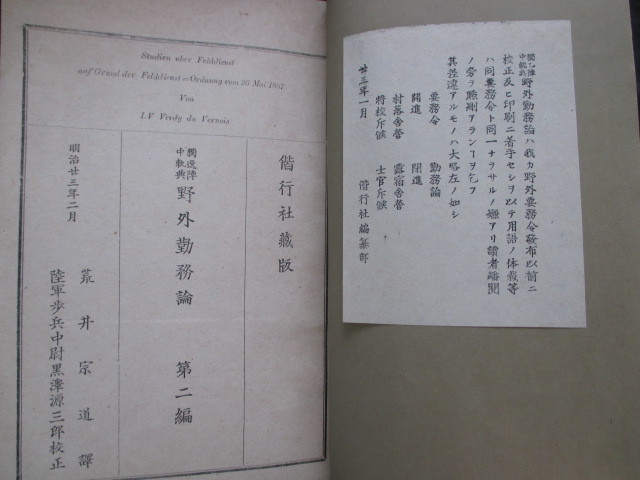 獨逸陣中軌典野外勤務論ハ我カ野外要務令發布以前ニ
校正及ヒ印刷ニ着手セシヲ以テ用語ノ体裁等
ハ同要務令ト同一ナラサルノ嫌アリ讀者繙閲
ノ労ヲ賜測アランヿヲ乞フ
其差違アルモノハ大略左ノ如シ
要務令 勤務論
開進 閉進
村落舎營 露宿舎營
將校斥候 士官斥候
廿三年一月 偕行社編纂部
Studien uber Felddienst
auf Grund der Felddienst=Ordnung vom 23 Mai 1887
Von
I.V Verdy du Vernois
偕行社藏版
獨逸陣中軌典 野外勤務論 第二編
明治廿三年二月
荒井宗道譯
陸軍歩兵中尉黒澤源三郎校正